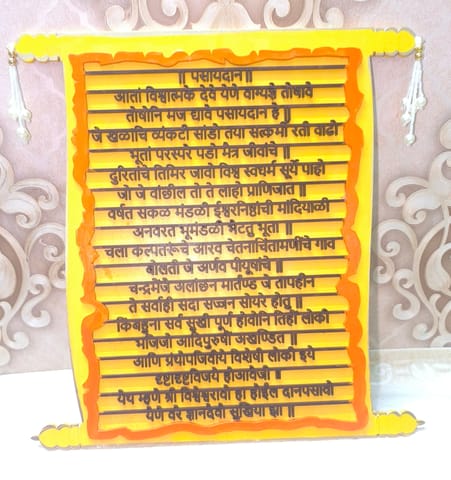 ॥ पसायदान ॥
आतां विश्वात्मके देवे येणे वाग्यज्ञे तोषावे
तोषोनि मज द्यावे पसायदान हे ॥
जे खळाचि व्यंकटी सांडो तया सत्कर्मी रती वाढो
भूतां परस्परे पडो मैत्र जीवांचे ॥
दुरितांचे तिमिर जावो विश्व स्वधर्म सूर्ये पाहो
जो जे वांछील तो ते लाहो प्राणिजात ॥
वर्षत सकळ मंडळी ईश्वरनिष्ठांची मांदियाळी
अनवरत भूमंडळी भेटतु भूतां ॥
चला कल्पतरूंचे आरव चेतनाचिंतामणींचे गाव
बोलती जे अर्णव पीयूषांचे ॥
चन्द्रमेंजे अलांछन मार्तण्ड जे तापहीन
ते सर्वांही सदा सज्जन सोयरे होतु ॥
किंबहुना सर्व सुखी पूर्ण होवोनि तिहीं लोकी
भजिजो आदिपुरुषी अखण्डित ॥
आणि ग्रंथोपजिवीये विशेषी लोकी इये
दृष्टादृष्टविजये होआवेजी ॥
येथ म्हणे श्री विश्वेश्वरावो हा होईल दानपसावो
येणे वरे ज्ञानदेवो सुखिया झा ॥